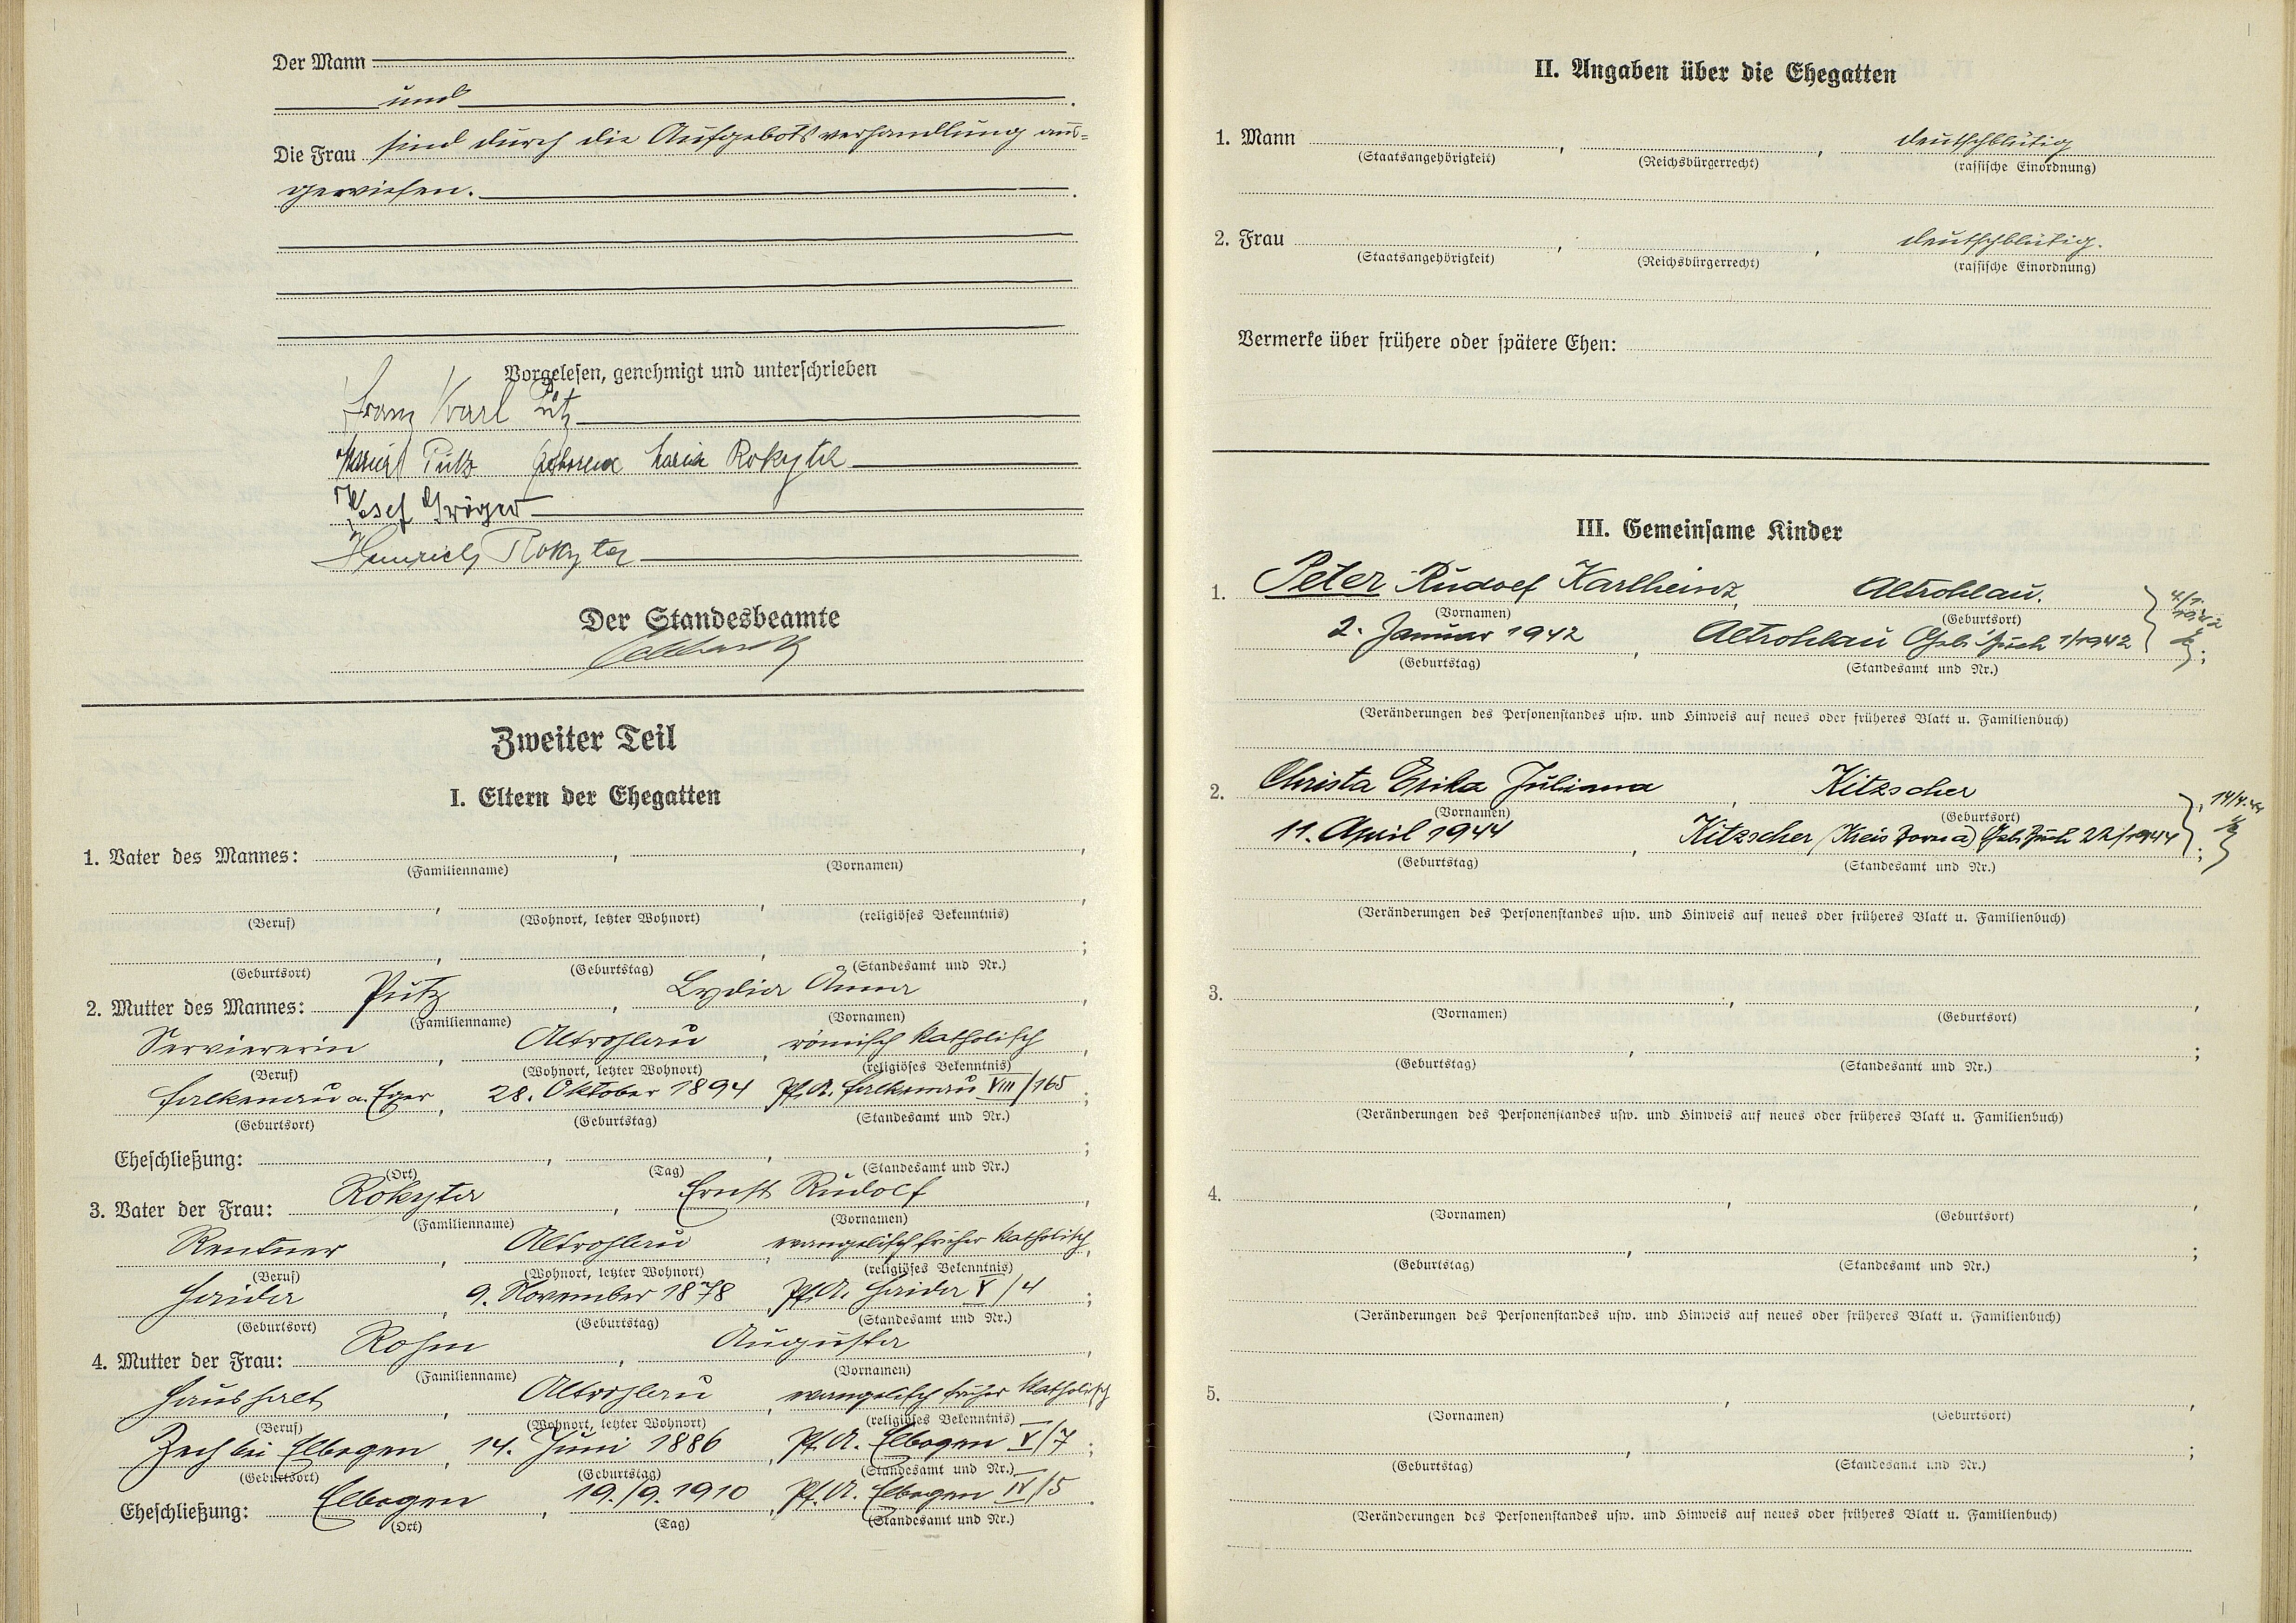 Der Mann
und
Die Frau sind durch die Aufgebotsverhandlung aus=
gewiesen.
Vorgelesen, genehmigt und unterschrieben
Franz Karl Pütz
Maria Pütz geborene Maria Rokyta
Josef Gröger
Heinrich Rokyta
Der Standesbeamte
Zweiter Teil
I. Eltern der Ehegatten
1. Vater des Mannes: , ,
(Familienname) (Vornamen)
, , ,
(Beruf) (Wohnort, letzter Wohnort) (religiöses Bekenntnis)
, , ;
(Geburtsort) (Geburtstag) (Standesamt und Nr.)
2. Mutter des Mannes: Pütz, Lydia Anna,
(Familienname) (Vornamen)
Serviererin, Altrohlau, römisch katholisch,
(Beruf) (Wohnort, letzter Wohnort) (religiöses Bekenntnis)
Falkenau a. Eger, 28. Oktober 1894, Pf.A. Falkenau VIII/165;
(Geburtsort) (Geburtstag) (Standesamt und Nr.)
Eheschließung: , , ;
(Ort) (Tag) (Standesamt und Nr.)
3. Vater der Frau: Rokyta, Ernst Rudolf,
(Familienname) (Vornamen)
Rentner, Altrohlau, evangelisch früher katholisch,
(Beruf) (Wohnort, letzter Wohnort) (religiöses Bekenntnis)
Haida, 9. November 1878, Pf.A. Haida V/4;
(Geburtsort) (Geburtstag) (Standesamt und Nr.)
4. Mutter der Frau: Rohm, Augusta,
(Familienname) (Vornamen)
Haushalt, Altrohlau, evangelisch früher katholisch
(Beruf) (Wohnort, letzter Wohnort) (religiöses Bekenntnis)
Zech bei Elbogen, 14. Juni 1886, Pf.A. Elbogen V/7;
(Geburtsort) (Geburtstag) (Standesamt und Nr.)
Eheschließung: Elbogen, 19./9.1910, Pf.A. Elbogen IV/5.
(Ort) (Tag) (Standesamt und Nr.)
II. Angaben über die Ehegatten
1. Mann , , deutschblütig
(Staatsangehörigkeit) (Reichsbürgerrecht) (rassische Einordnung)
2. Frau , , deutschblütig.
(Staatsangehörigkeit) (Reichsbürgerrecht) (rassische Einordnung)
Vermerke über frühere oder spätere Ehen:
III. Gemeinsame Kinder
1. Peter Rudolf Karlheinz, Altrohlau.
(Vornamen) (Geburtsort)
2. Januar 1942, Altrohlau Geb. Buch 1/1942;
(Geburtstag) (Standesamt und Nr.)
(Veränderungen des Personenstandes usw. und Hinweis auf neues oder früheres Blatt u. Familienbuch)
2. Christa Erika Juliana, Kitzscher
(Vornamen) (Geburtsort)
11. April 1944, Kitzscher (Kreis Borna) Geb. Buch 22/1944;
14/4.44
(Geburtstag) (Standesamt und Nr.)
(Veränderungen des Personenstandes usw. und Hinweis auf neues oder früheres Blatt u. Familienbuch)
3. , ,
(Vornamen) (Geburtsort)
, ;
(Geburtstag) (Standesamt und Nr.)
(Veränderungen des Personenstandes usw. und Hinweis auf neues oder früheres Blatt u. Familienbuch)
4. , ,
(Vornamen) (Geburtsort)
, ;
(Geburtstag) (Standesamt und Nr.)
(Veränderungen des Personenstandes usw. und Hinweis auf neues oder früheres Blatt u. Familienbuch)
5. , ,
(Vornamen) (Geburtsort)
, ;
(Geburtstag) (Standesamt und Nr.)
(Veränderungen des Personenstandes usw. und Hinweis auf neues oder früheres Blatt u. Familienbuch)